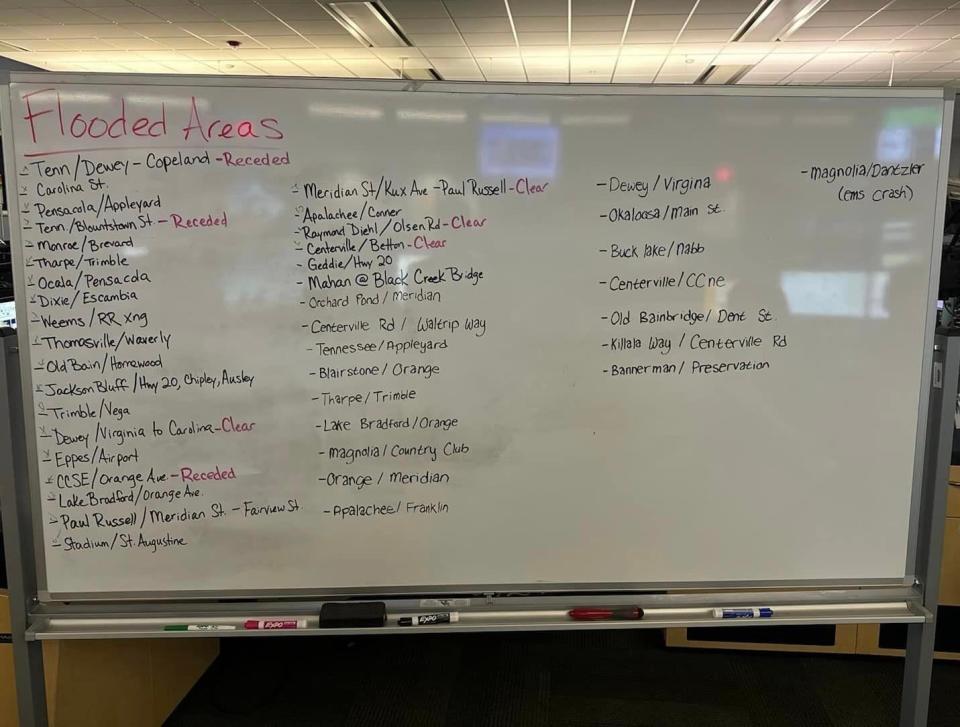 Flooded Areas
- Tenn/Dewey - Copeland - Receded
- Carolina St.
- Pensacola/Appleyard
- Tenn/Blountstown St. - Receded
- Monroe/Brevard
- Tharpe/Trimble
- Ocala/Pensacola
- Dixie/Escambia
- Weems/RR xng
- Thomasville/Waverly
- Old Bain/Homewood
- Jackson Bluff/Hwy 20, Chipley, Ausley
- Trimble/Vega
- Dewey/Virginia to Carolina - Clear
- Eppes/Airport
- CCSE/Orange Ave. - Receded
- Lake Bradford/Orange Ave.
- Paul Russell/Meridian St. - Fairview St.
- Stadium/St. Augustine
- Meridian St/Kux Ave - Paul Russell - Clear
- Apalachee/Conner
- Raymond Diehl/Olsen Rd - Clear
- Centerville/Betton - Clear
- Geddie/Hwy 20
- Mahan @ Black Creek Bridge
- Orchard Pond/Meridian
- Centerville Rd/Waltrip Way
- Tennessee/Appleyard
- Blairstone/Orange
- Tharpe/Trimble
- Lake Bradford/Orange
- Magnolia/Country Club
- Orange/Meridian
- Apalachee/Franklin
- Dewey/Virgina
- Okaloosa/Main St.
- Buck lake/Nabb
- Centerville/CC ne
- Old Bainbridge/Dent St.
- Killala Way/Centerville Rd
- Bannerman/Preservation
- Magnolia/Dantzler
(ems crash)
EXPO
EXPO